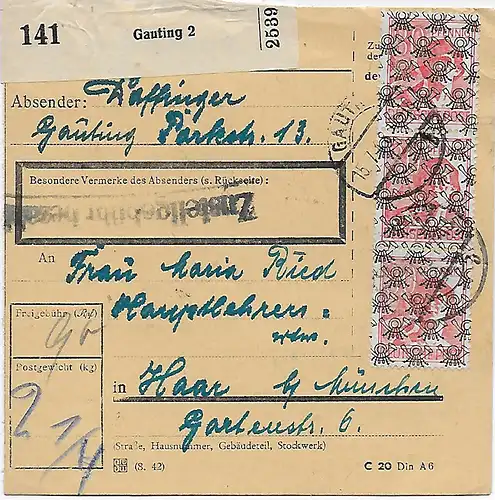 141
Gauting 2
2539
Absender: Daffinger
Gauting Parkstr. 13.
Besondere Vermerke des Absenders (s. Rückseite):
Zustellgebühr bezahlt
An
Frau Maria Ried
Hauptlehrers
wtw.
Freigebühr (Rpf)
90
Postgewicht (kg)
2
in Haar b/ München
Gartenstr. 6.
(Straße, Hausnummer, Gebäudeteil, Stockwerk)
(S. 42)
C 20 Din A6
Zu
der
de
GAUT